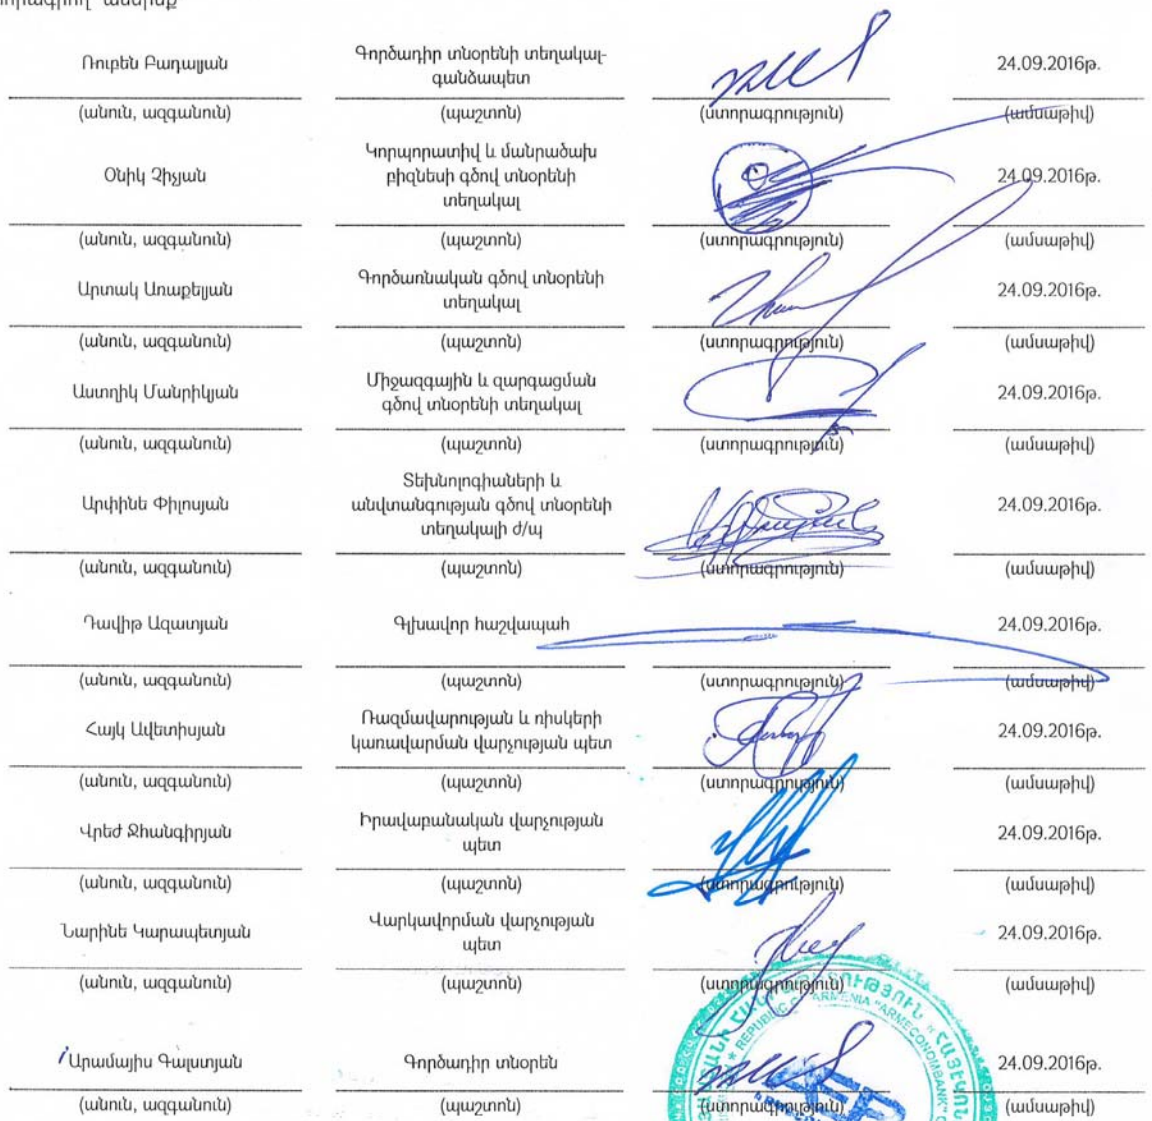 Ռուբեն Բադալյան
Գործադիր տնօրենի տեղակալ-
գանձապետ
24.09.2016թ.
(անուն, ազգանուն) (պաշտոն) (ստորագրություն) (ամսաթիվ)
Օնիկ Չիչյան
Կորպորատիվ և մանրածախ
բիզնեսի գծով տնօրենի
տեղակալ
24.09.2016թ.
(անուն, ազգանուն) (պաշտոն) (ստորագրություն) (ամսաթիվ)
Արտակ Առաքելյան
Գործառնական գծով տնօրենի
տեղակալ
24.09.2016թ.
(անուն, ազգանուն) (պաշտոն) (ստորագրություն) (ամսաթիվ)
Աստղիկ Մանրիկյան
Միջազգային և զարգացման
գծով տնօրենի տեղակալ
24.09.2016թ.
(անուն, ազգանուն) (պաշտոն) (ստորագրություն) (ամսաթիվ)
Արփինե Փիլոսյան
Տեխնոլոգիաների և
անվտանգության գծով տնօրենի
տեղակալի ժ/պ
24.09.2016թ.
(անուն, ազգանուն) (պաշտոն) (ստորագրություն) (ամսաթիվ)
Դավիթ Ազատյան
Գլխավոր հաշվապահ
24.09.2016թ.
(անուն, ազգանուն) (պաշտոն) (ստորագրություն) (ամսաթիվ)
Հայկ Ավետիսյան
Ռազմավարության և ռիսկերի
կառավարման վարչության պետ
24.09.2016թ.
(անուն, ազգանուն) (պաշտոն) (ստորագրություն) (ամսաթիվ)
Վրեժ Ջհանգիրյան
Իրավաբանական վարչության
պետ
24.09.2016թ.
(անուն, ազգանուն) (պաշտոն) (ստորագրություն) (ամսաթիվ)
Նարինե Կարապետյան
Վարկավորման վարչության
պետ
24.09.2016թ.
(անուն, ազգանուն) (պաշտոն) (ստորագրություն) (ամսաթիվ)
Արամայիս Գալստյան
Գործադիր տնօրեն
24.09.2016թ.
(անուն, ազգանուն) (պաշտոն) (ստորագրություն) (ամսաթիվ)
ARMENIA "ARMECONOMBANK"